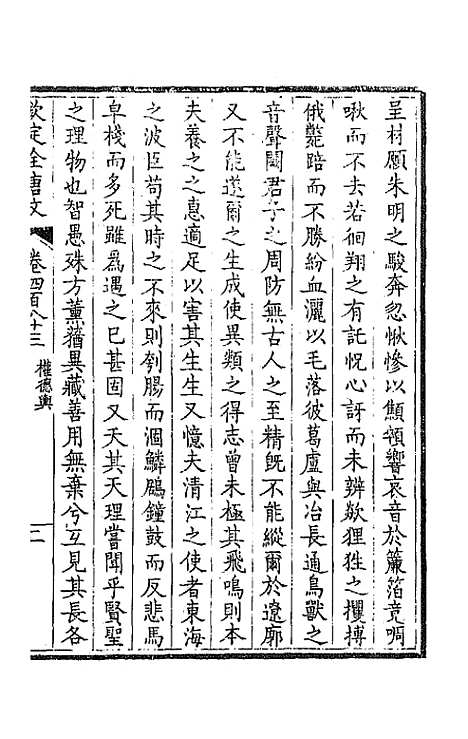 呈材願朱明之駿奔忽愀慘以顦顇響哀音於簾箔竟啁
啾而不去若徊翔之有託怳心訝而未辨欻狸狌之攫搏
俄斃踣而不勝紛血灑以毛落彼葛盧與冶長通鳥獸之
音聲闕君子之周防無古人之至精旣不能縱爾於遼廓
又不能遂爾之生成使異類之得志曾未極其飛鳴則本
夫養之之惠適足以害其生生又憶夫清江之使者東海
之波臣苟其時之不來則刳腸而涸鱗鶢鐘鼓而反悲馬
皁棧而多死雖爲遇之已甚固又夭其天理嘗聞乎賢聖
之理物也智愚殊方薰蕕異藏善用無棄兮互見其長各
欽定全唐文 卷四百八十三 權德輿 二